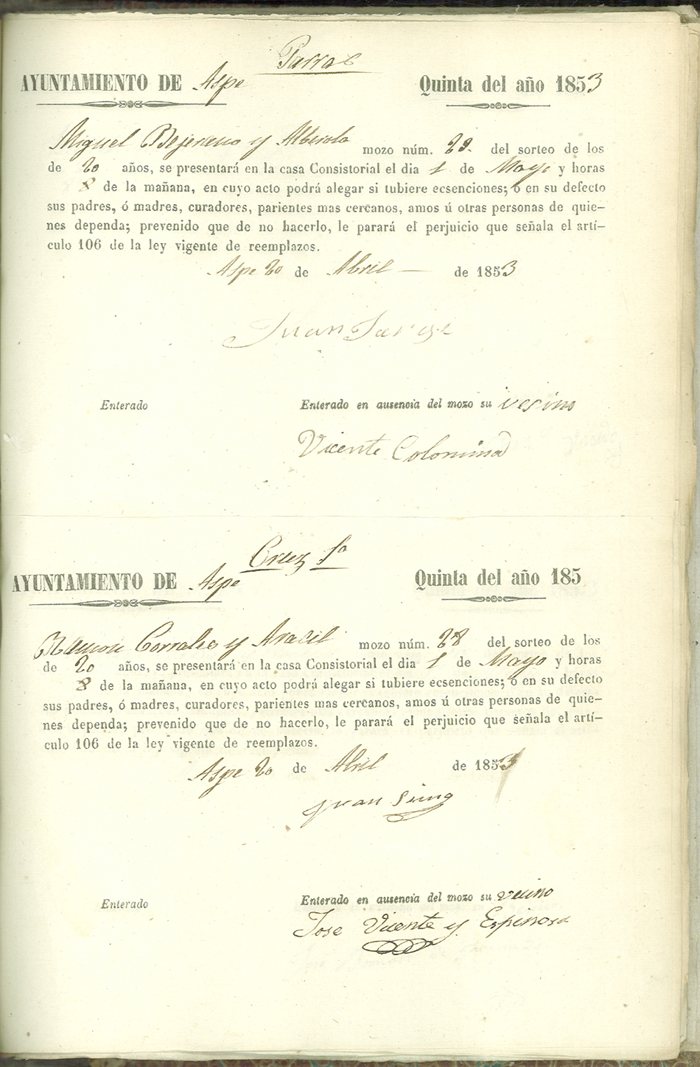 Parral
AYUNTAMIENTO DE Aspe Quinta del año 1853
Miguel y Alberola mozo núm. 29. del sorteo de los
de 20 años, se presentará en la casa Consistorial el dia 1 de Mayo y horas
8 de la mañana, en cuyo acto podrá alegar si tubiere ecsenciones; ó en su defecto
sus padres, ó madres, curadores, parientes mas cercanos, amos ú otras personas de quie-
nes dependa; prevenido que de no hacerlo, le parará el perjuicio que señala el artí-
culo 106 de la ley vigente de reemplazos.
Aspe 20 de Abril — de 1853
Juan
Enterado Enterado en ausencia del mozo su vesino
Vicente Colomina
Cruz
AYUNTAMIENTO DE Aspe Quinta del año 185
Ramon Corrales y Aracil mozo núm. 28 del sorteo de los
de 20 años, se presentará en la casa Consistorial el dia 1 de Mayo y horas
8 de la mañana, en cuyo acto podrá alegar si tubiere ecsenciones; ó en su defecto
sus padres, ó madres, curadores, parientes mas cercanos, amos ú otras personas de quie-
nes dependa; prevenido que de no hacerlo, le parará el perjuicio que señala el artí-
culo 106 de la ley vigente de reemplazos.
Aspe 20 de Abril de 1853
Juan
Enterado Enterado en ausencia del mozo su vecino
Jose Vicente y Espinosa